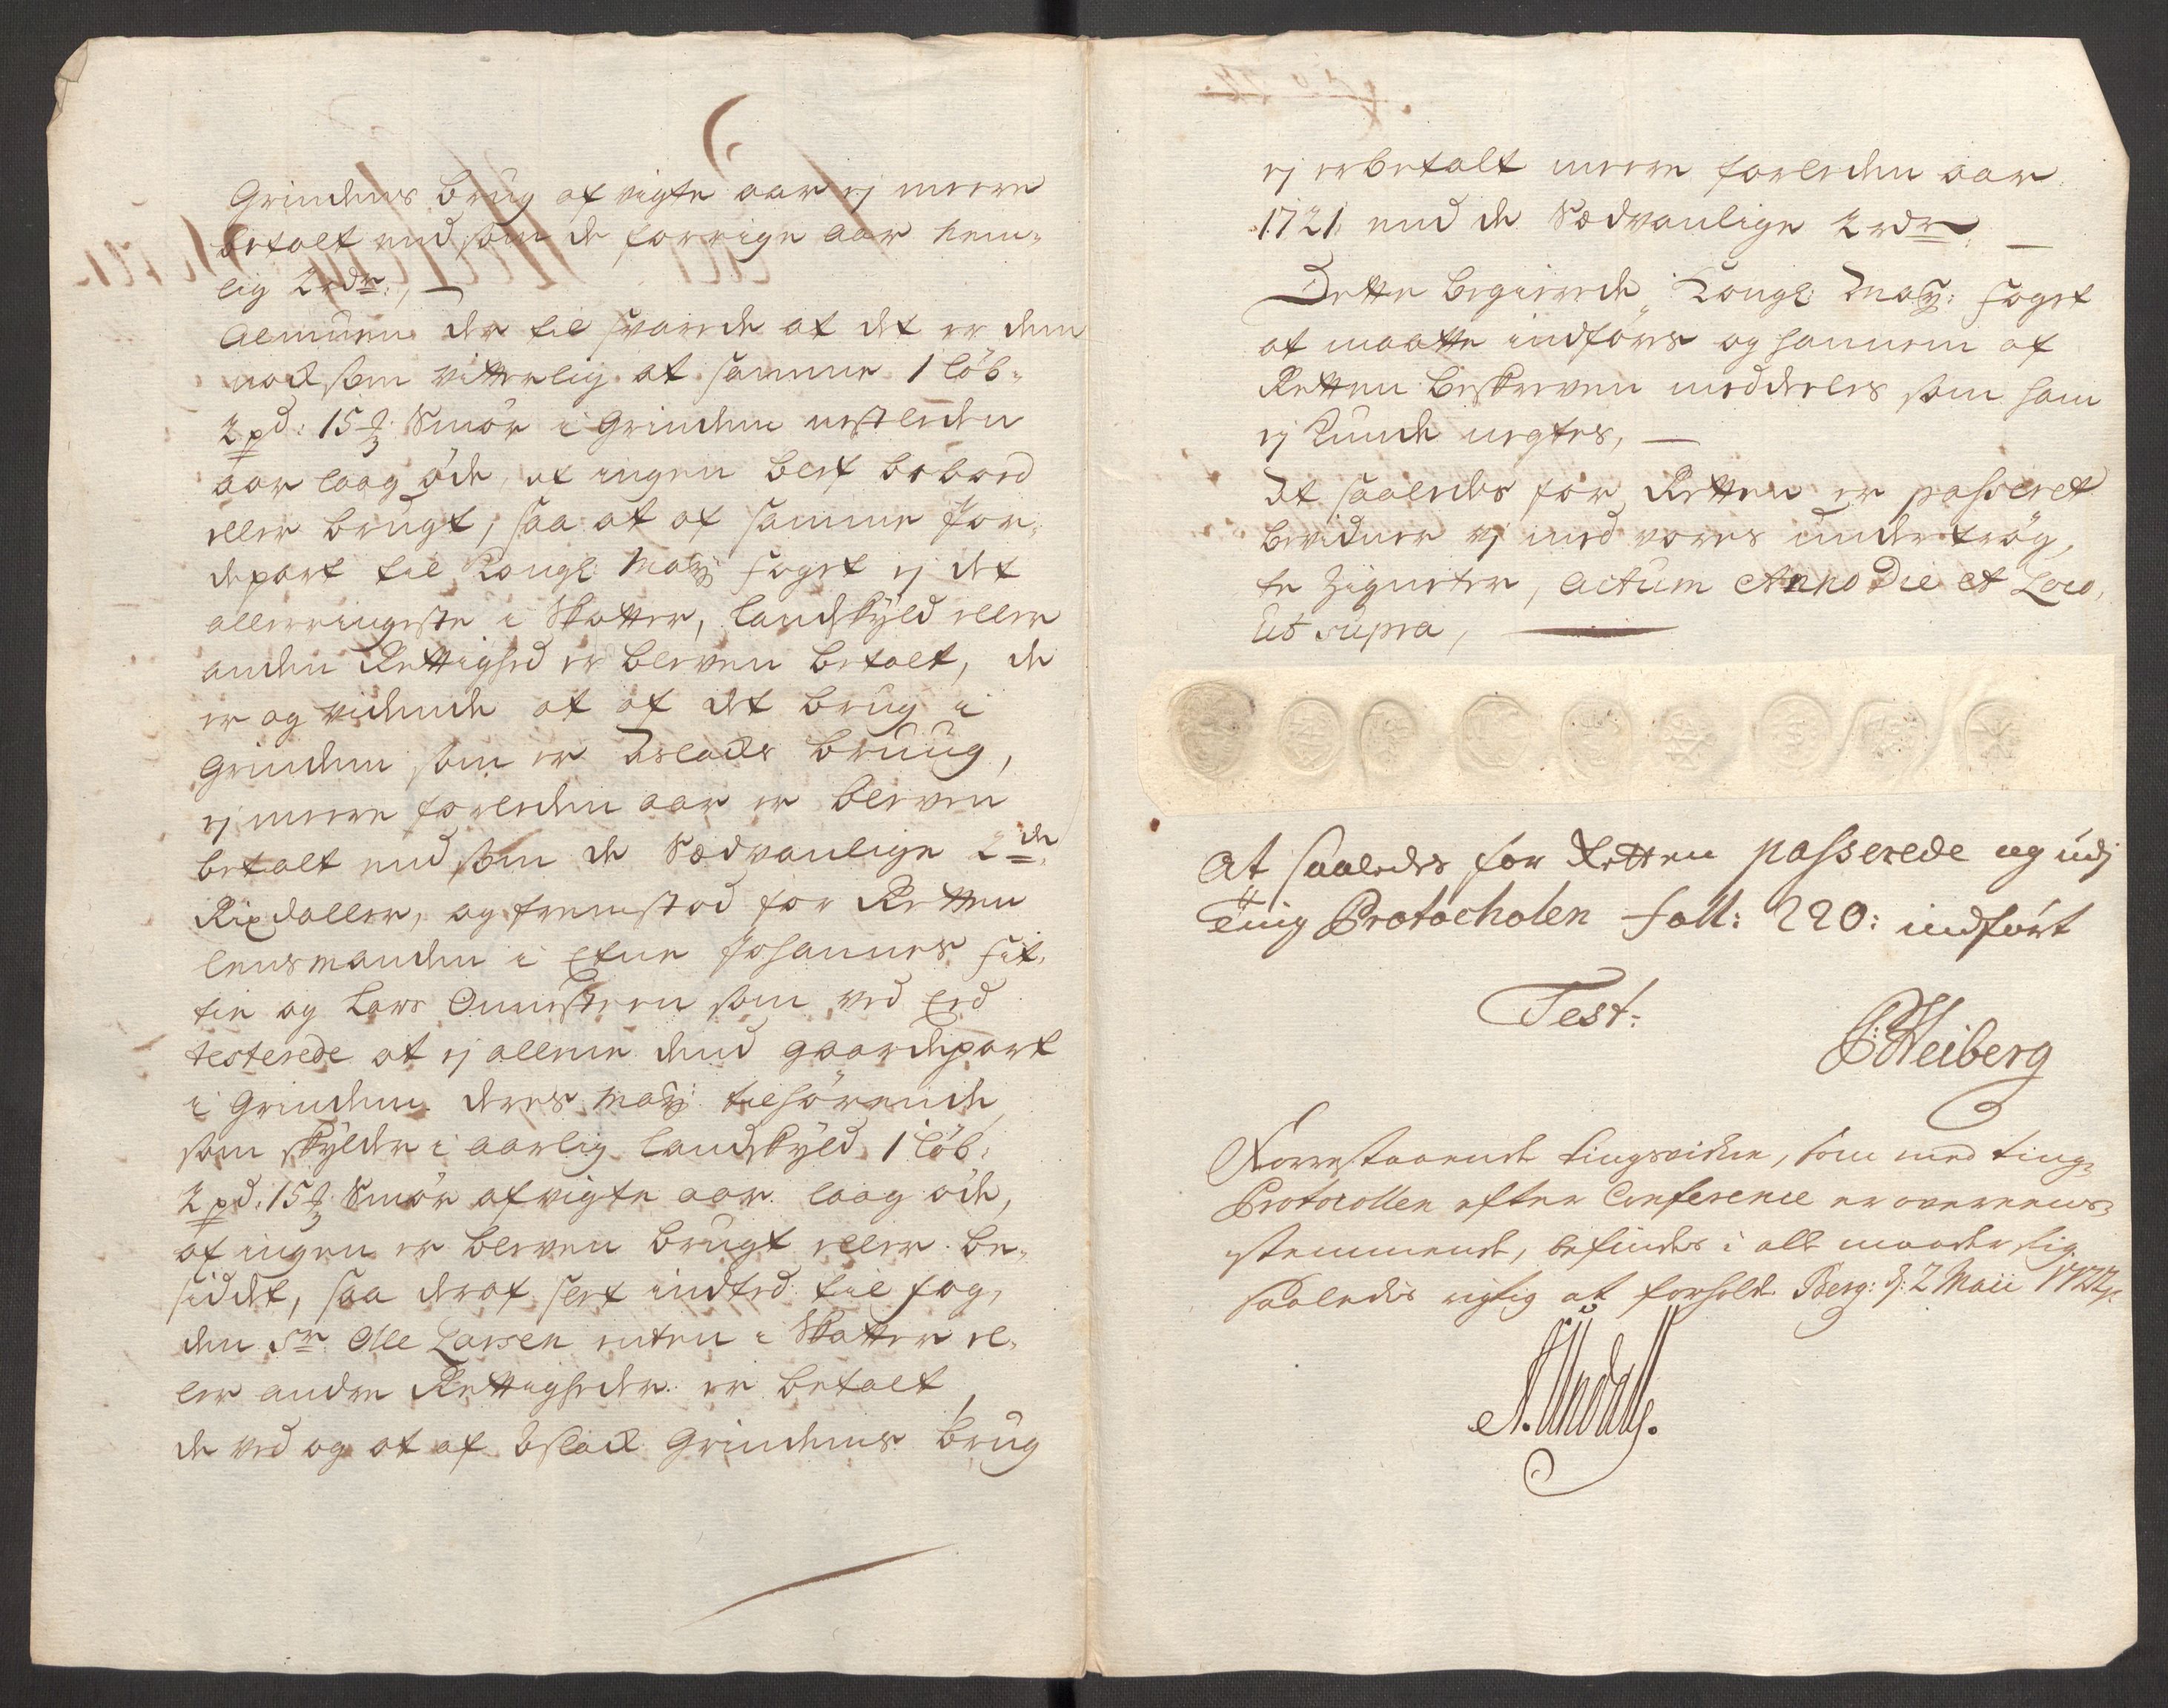 Grindens brug afvigte aar ej meere
betalt end som de forrige aar nem-
lig 2 rdr:, —
Almuen der til svarede at det er dem
nock som vitterlig at samme 1 löb:
2 pd: 15 ₰ Smör i Grinden nestleden
aar laag øde, at ingen blef beboed
eller brugt, saa at af samme Jor-
depart til Kongl: Mayt: foget ej det
allerringeste i Skatter, landskÿld eller
anden Rettighed er bleven betalt, de
er og vidende at af det brug i
Grinden som er Aslacks bruug,
ej meere forleden aar er bleven
betalt end som de Sædvanlige 2de
Rixdaller, og fremstod for Retten
lensmanden i Etne Johannes
og Lars som ved Eed
testerede at ej allene dend gaardepart
i Grinden deres Mayt: tilhörende
som skÿlder i aarlig landskÿld 1 löb:
2 pd: 15 ₰ Smör afvigte aar laag öde,
af ingen er bleven brugt eller be-
siddet, saa deraf slet indted til fog-
den Sr: Olle Larsen enten i Skatter el-
ler andre Rettigheder er betalt,
de ved og at af Aslack Grindens brug
ej er betalt meere forleden aar
1721 end de Sædvanlige 2 rdr: —
Dette begierede Kongl: Mayt: foget
at maatte indføres og hannem af
Retten beskreven meddeeles som ham
ej kunde negtes, —
At saaledes for Retten er passeret
bevidner vj med vores undertrög-
te Zigneter, Actum Anno Die et Loco,
Ut supra, —
At saaledes for Retten passerede og udj
Ting Protocholen foll: 220: indført
Test:
Heiberg
Forrestaaende tingsvidne, som med ting-
Protocollen efter Conference er overeens-
stemmende, befindes i alt maader sig
saaledis rigtig at forholde. Berg: d: 2 Maii 1722.